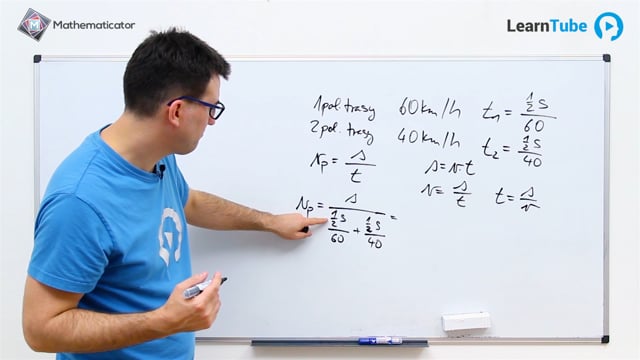 Mathematicator
LearnTube
1 poł. trasy 60 km/h t₁ = ½s/60
2 poł. trasy 40 km/h t₂ = ½s/40
vₚ = s/t
s = v·t
v = s/t t = s/v
vₚ = s/(½s/60 + ½s/40) =